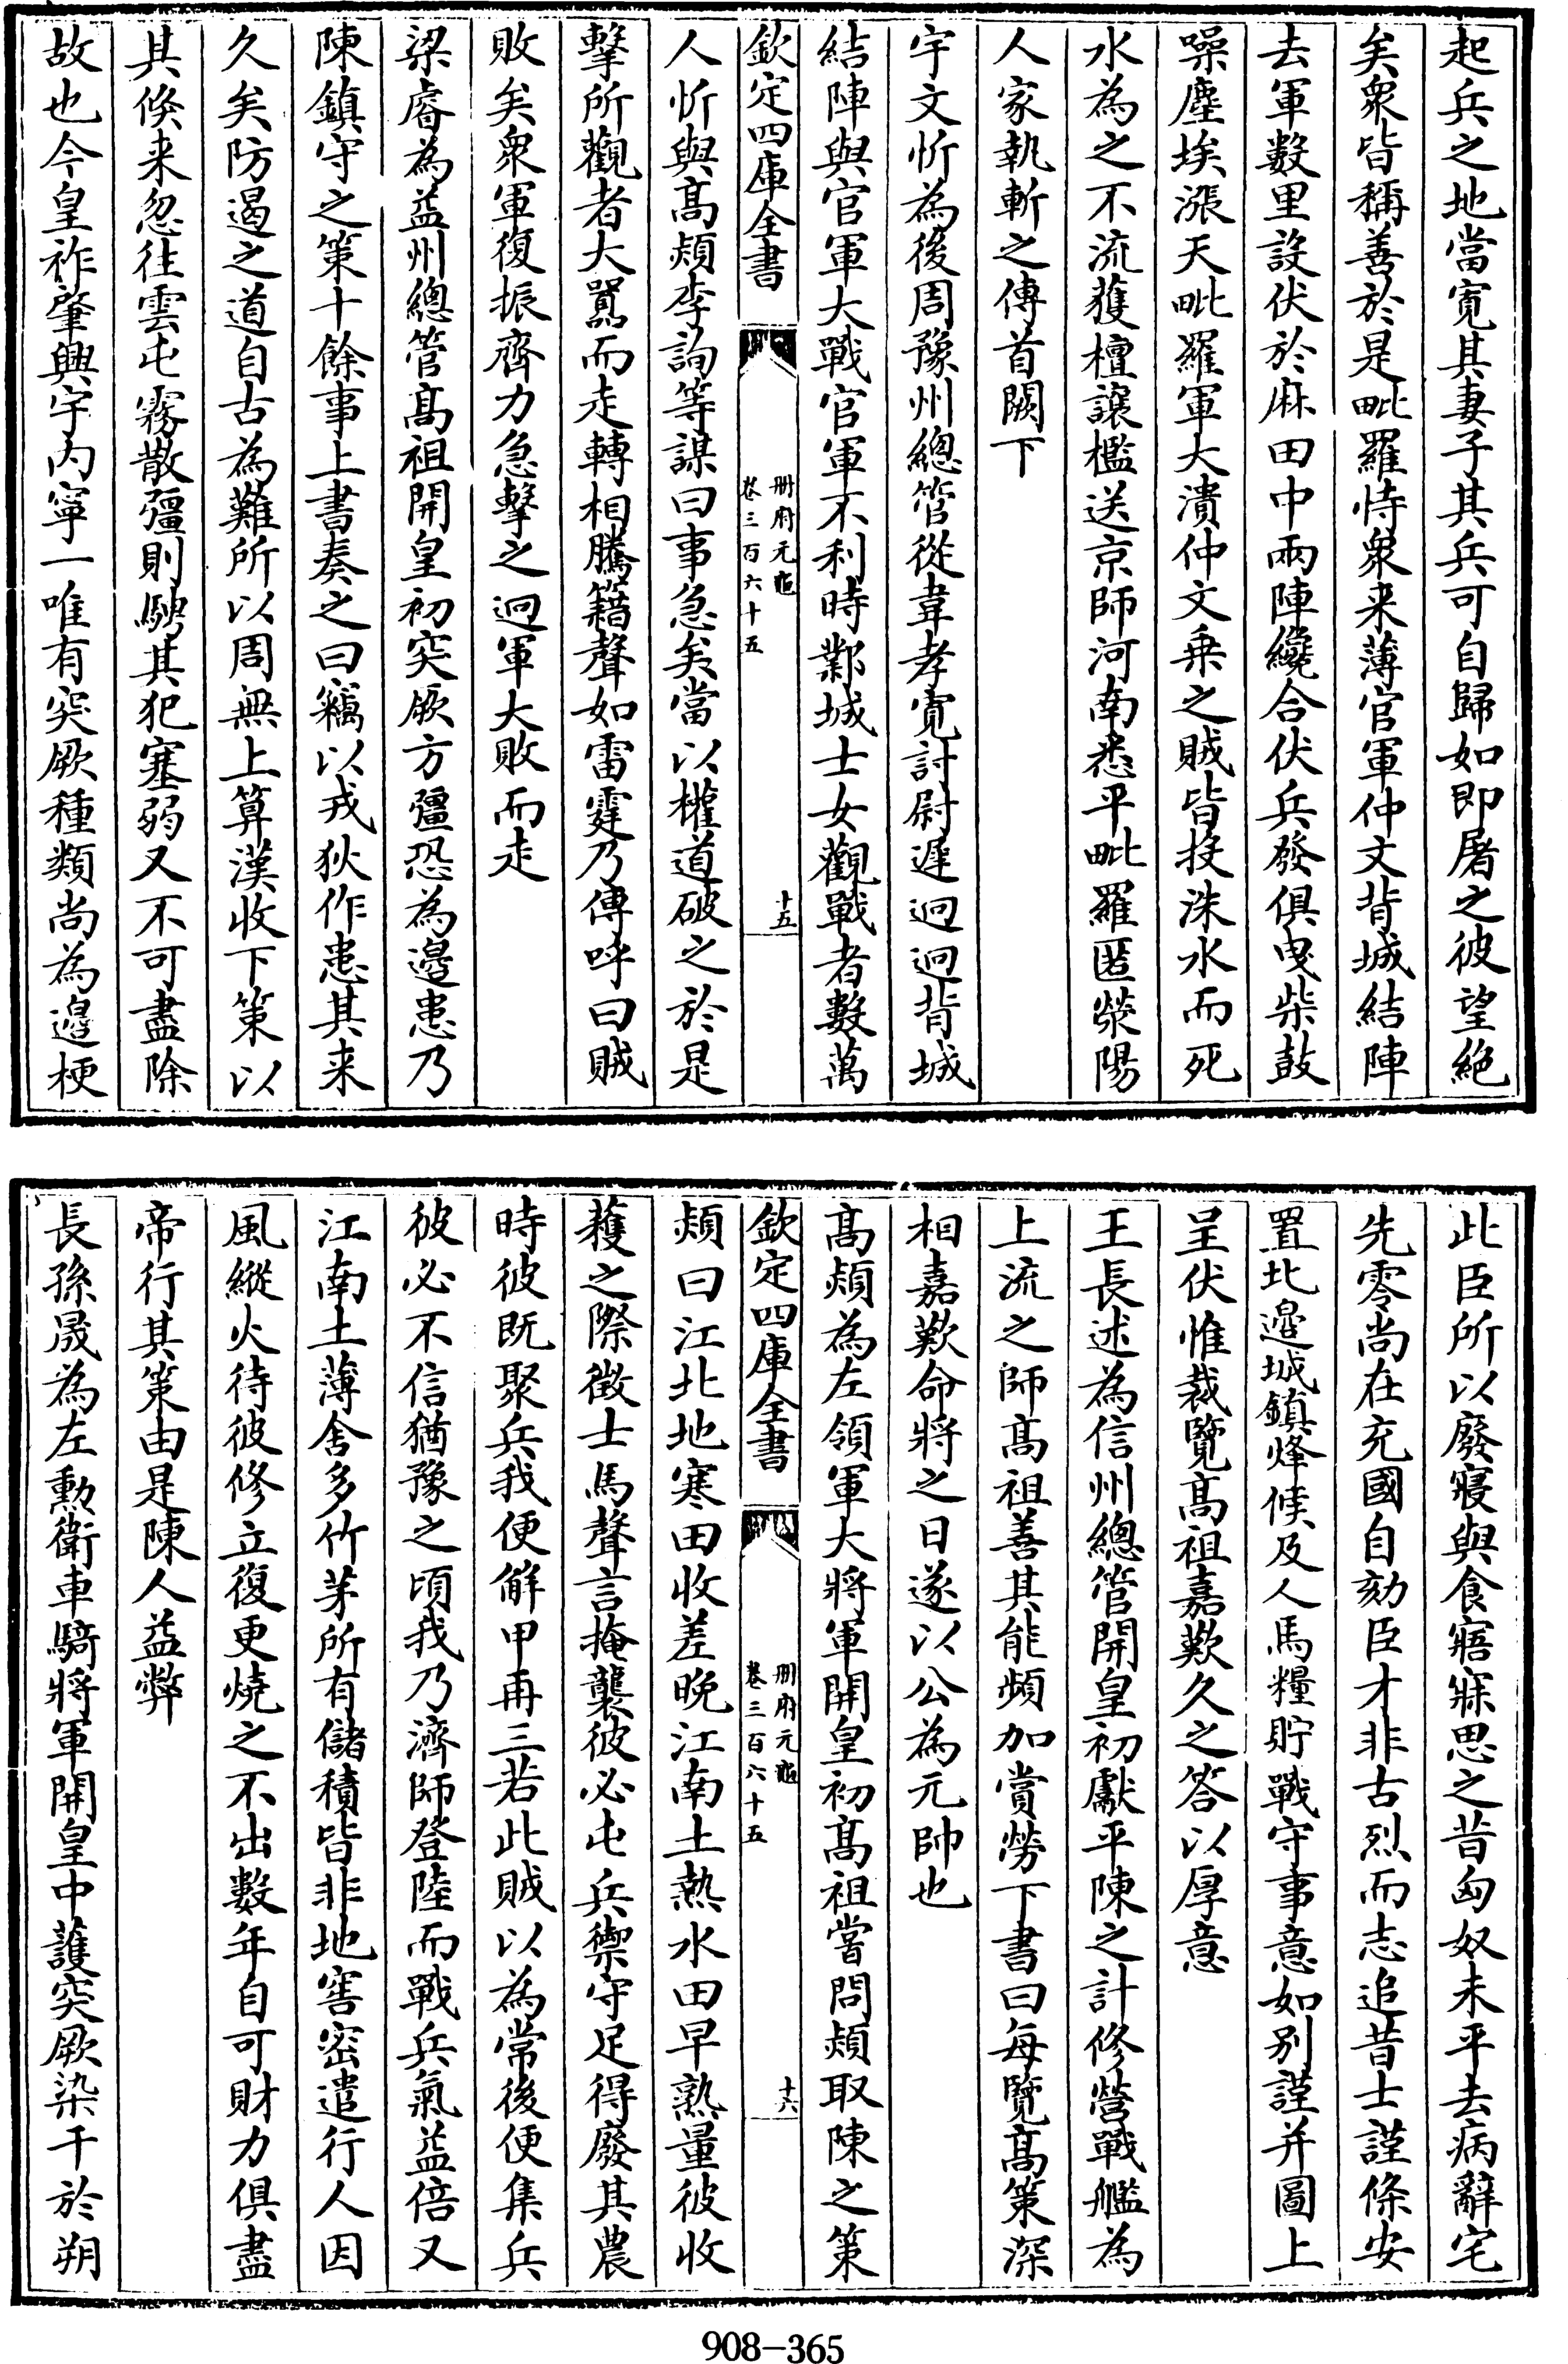 起兵之地當寛其妻子其兵可自歸如即屠之彼望絶
矣衆皆稱善於是毗羅恃衆来薄官軍仲文背城結陣
去軍數里設伏於麻田中兩陣纔合伏兵發俱曳柴鼓
噪塵埃漲天毗羅軍大潰仲文乗之賊皆投洙水而死
水為之不流獲檀讓檻送京師河南悉平毗羅匿滎陽
人家執斬之傳首闕下
宇文忻為後周豫州總管從韋孝寛討尉遲迥迥背城
結陣與官軍大戰官軍不利時鄴城士女觀戰者數萬
欽定四庫全書
冊府元龜
卷三百六十五
十五
人忻與髙熲李詢等謀曰事急矣當以權道破之於是
擊所觀者大囂而走轉相騰籍聲如雷霆乃傳呼曰賊
敗矣衆軍復振齊力急擊之迥軍大敗而走
梁睿為益州總管髙祖開皇初突厥方彊恐為邊患乃
陳鎮守之策十餘事上書奏之曰竊以戎狄作患其来
久矣防遏之道自古為難所以周無上算漢收下策以
其倐来忽往雲屯霧散彊則騁其犯塞弱又不可盡除
故也今皇祚肇興宇内寜一唯有突厥種類尚為邉梗
此臣所以廢寢與食寤寐思之昔匈奴未平去病辭宅
先零尚在充國自劾臣才非古烈而志追昔士謹條安
置北邉城鎮烽候及人馬糧貯戰守事意如别謹并圖上
呈伏惟裁覽髙祖嘉歎久之答以厚意
王長述為信州總管開皇初獻平陳之計修營戰艦為
上流之師髙祖善其能頻加賞勞下書曰每覽髙策深
相嘉歎命將之日遂以公為元帥也
髙熲為左領軍大將軍開皇初髙祖嘗問熲取陳之策
欽定四庫全書
冊府元龜
卷三百六十五
十六
熲曰江北地寒田收差晚江南土熱水田早熟量彼收
穫之際徴士馬聲言掩襲彼必屯兵禦守足得廢其農
時彼既聚兵我便解甲再三若此賊以為常後便集兵
彼必不信猶豫之頃我乃濟師登陸而戰兵氣益倍又
江南土薄舍多竹茅所有儲積皆非地窖密遣行人因
風縱火待彼修立復更燒之不出數年自可財力俱盡
帝行其策由是陳人益弊
長孫晟為左勲衛車騎將軍開皇中護突厥染干於朔
908-365